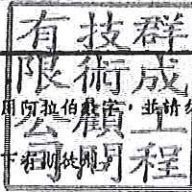 群成工程
技術顧問
有限公司
用阿拉伯數字，並請
下有期徒刑